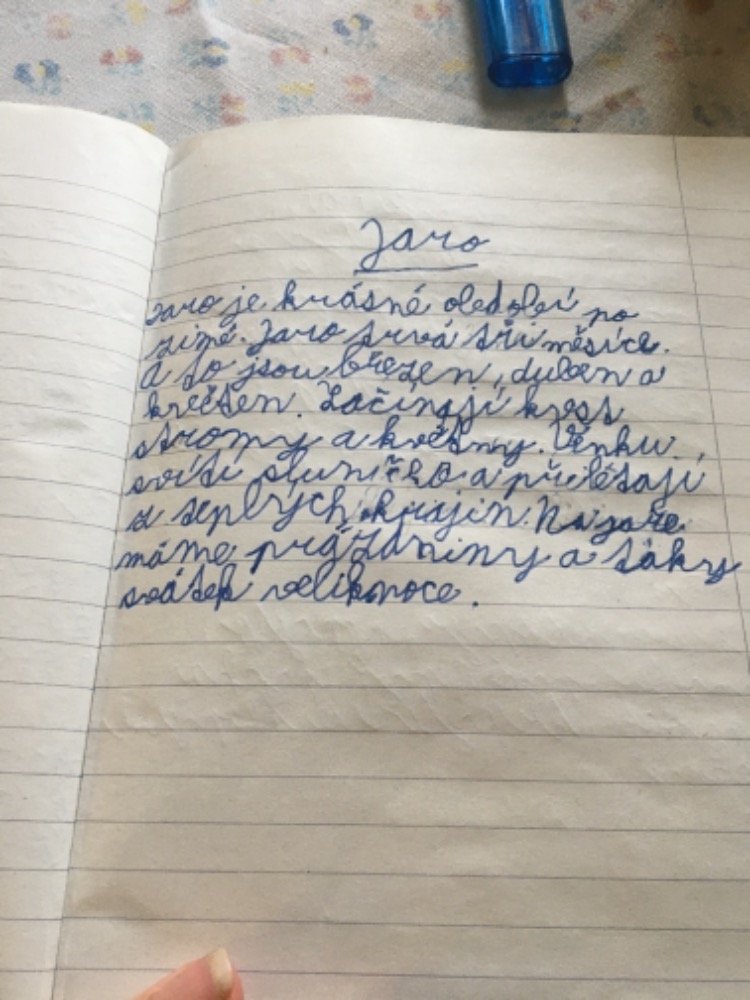 Jaro
Jaro je krásné období po
zimě. Jaro trvá tři měsíce.
A to jsou březen, duben a
květen. Začínají kvést
stromy a květiny. Venku
svítí sluníčko a přilétají
z teplých krajin. Na jaře
máme prázdniny a taky
svátek velikonoce.